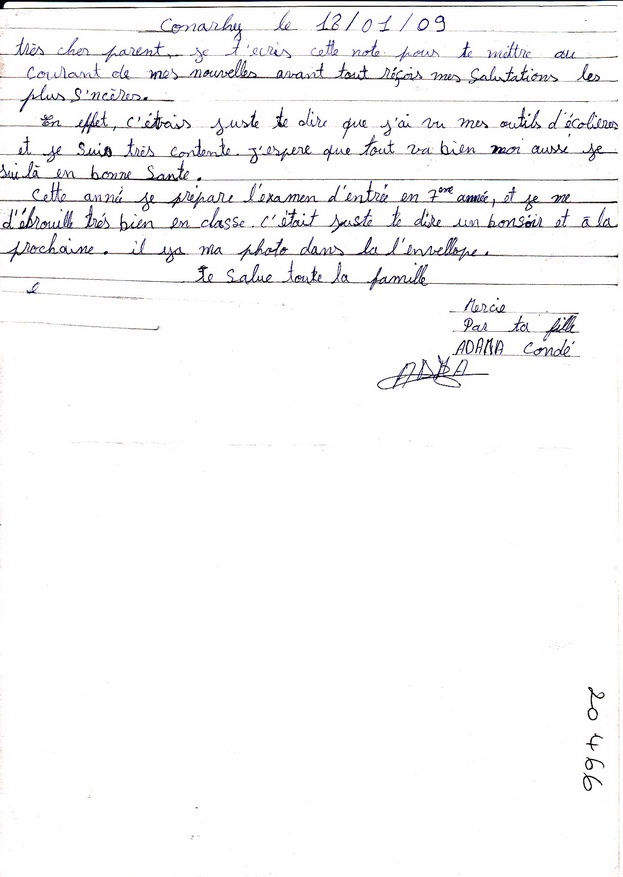 Conarky le 18/01/09
très cher parent, je t'ecris cette note pour te mettre au
courant de mes nouvelles avant tout réçois mes Salutations les
plus S'ncères.
En effet, c'étais juste te dire que j'ai vu mes outils d'écolieres
et je Suis très contente. j'espere que tout va bien moi ausse je
sui là en bonne Sante.
Cette année je prépare l'examen d'entrée en 7eme année, et je me
d'ébrouille très bien en classe. c'était juste te dire un bonsoir et à la
prochaine. il ya ma photo dans la l'envellope.
te Salue toute la famille
Mercie
Par ta fille
ADAMA Condé
20466